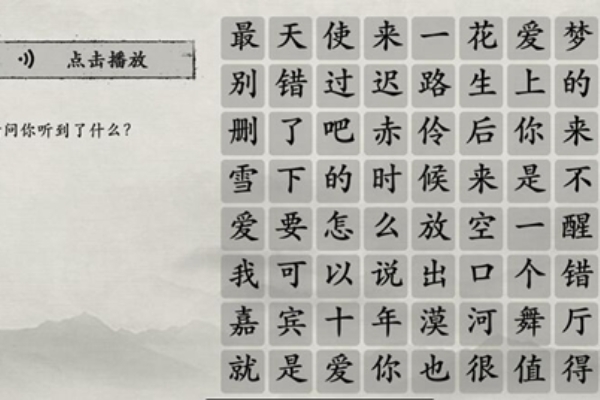 点击播放
问你听到了什么?
最天使来一花爱梦
别错过迟路生上的
删了吧赤伶后你来
雪下的时候来是不
爱要怎么放空一醒
我可以说出口个错
嘉宾十年漠河舞厅
就是爱你也很值得